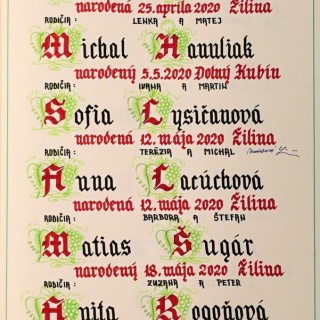 narodená 25.apríla 2020 Žilina
RODIČIA: LENKA A MATEJ
Michal Hanuliak
narodený 5.5.2020 Dolný Kubín
RODIČIA: IVANA A MARTIN
Sofia Lysičanová
narodená 12. mája 2020 Žilina
RODIČIA: TERÉZIA A MICHAL
Anna Lacúchová
narodená 12. mája 2020 Žilina
RODIČIA: BARBORA A ŠTEFAN
Matias Šugár
narodený 18. mája 2020 Žilina
RODIČIA: ZUZANA A PETER
Anita Rogoňová